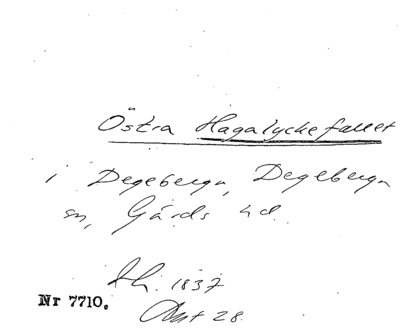 Östra Hagalyckefallet
i Degeberga, Degeberga
sn, Gärds hd.
Sk. 1837
Akt 28.
Nr 7710.